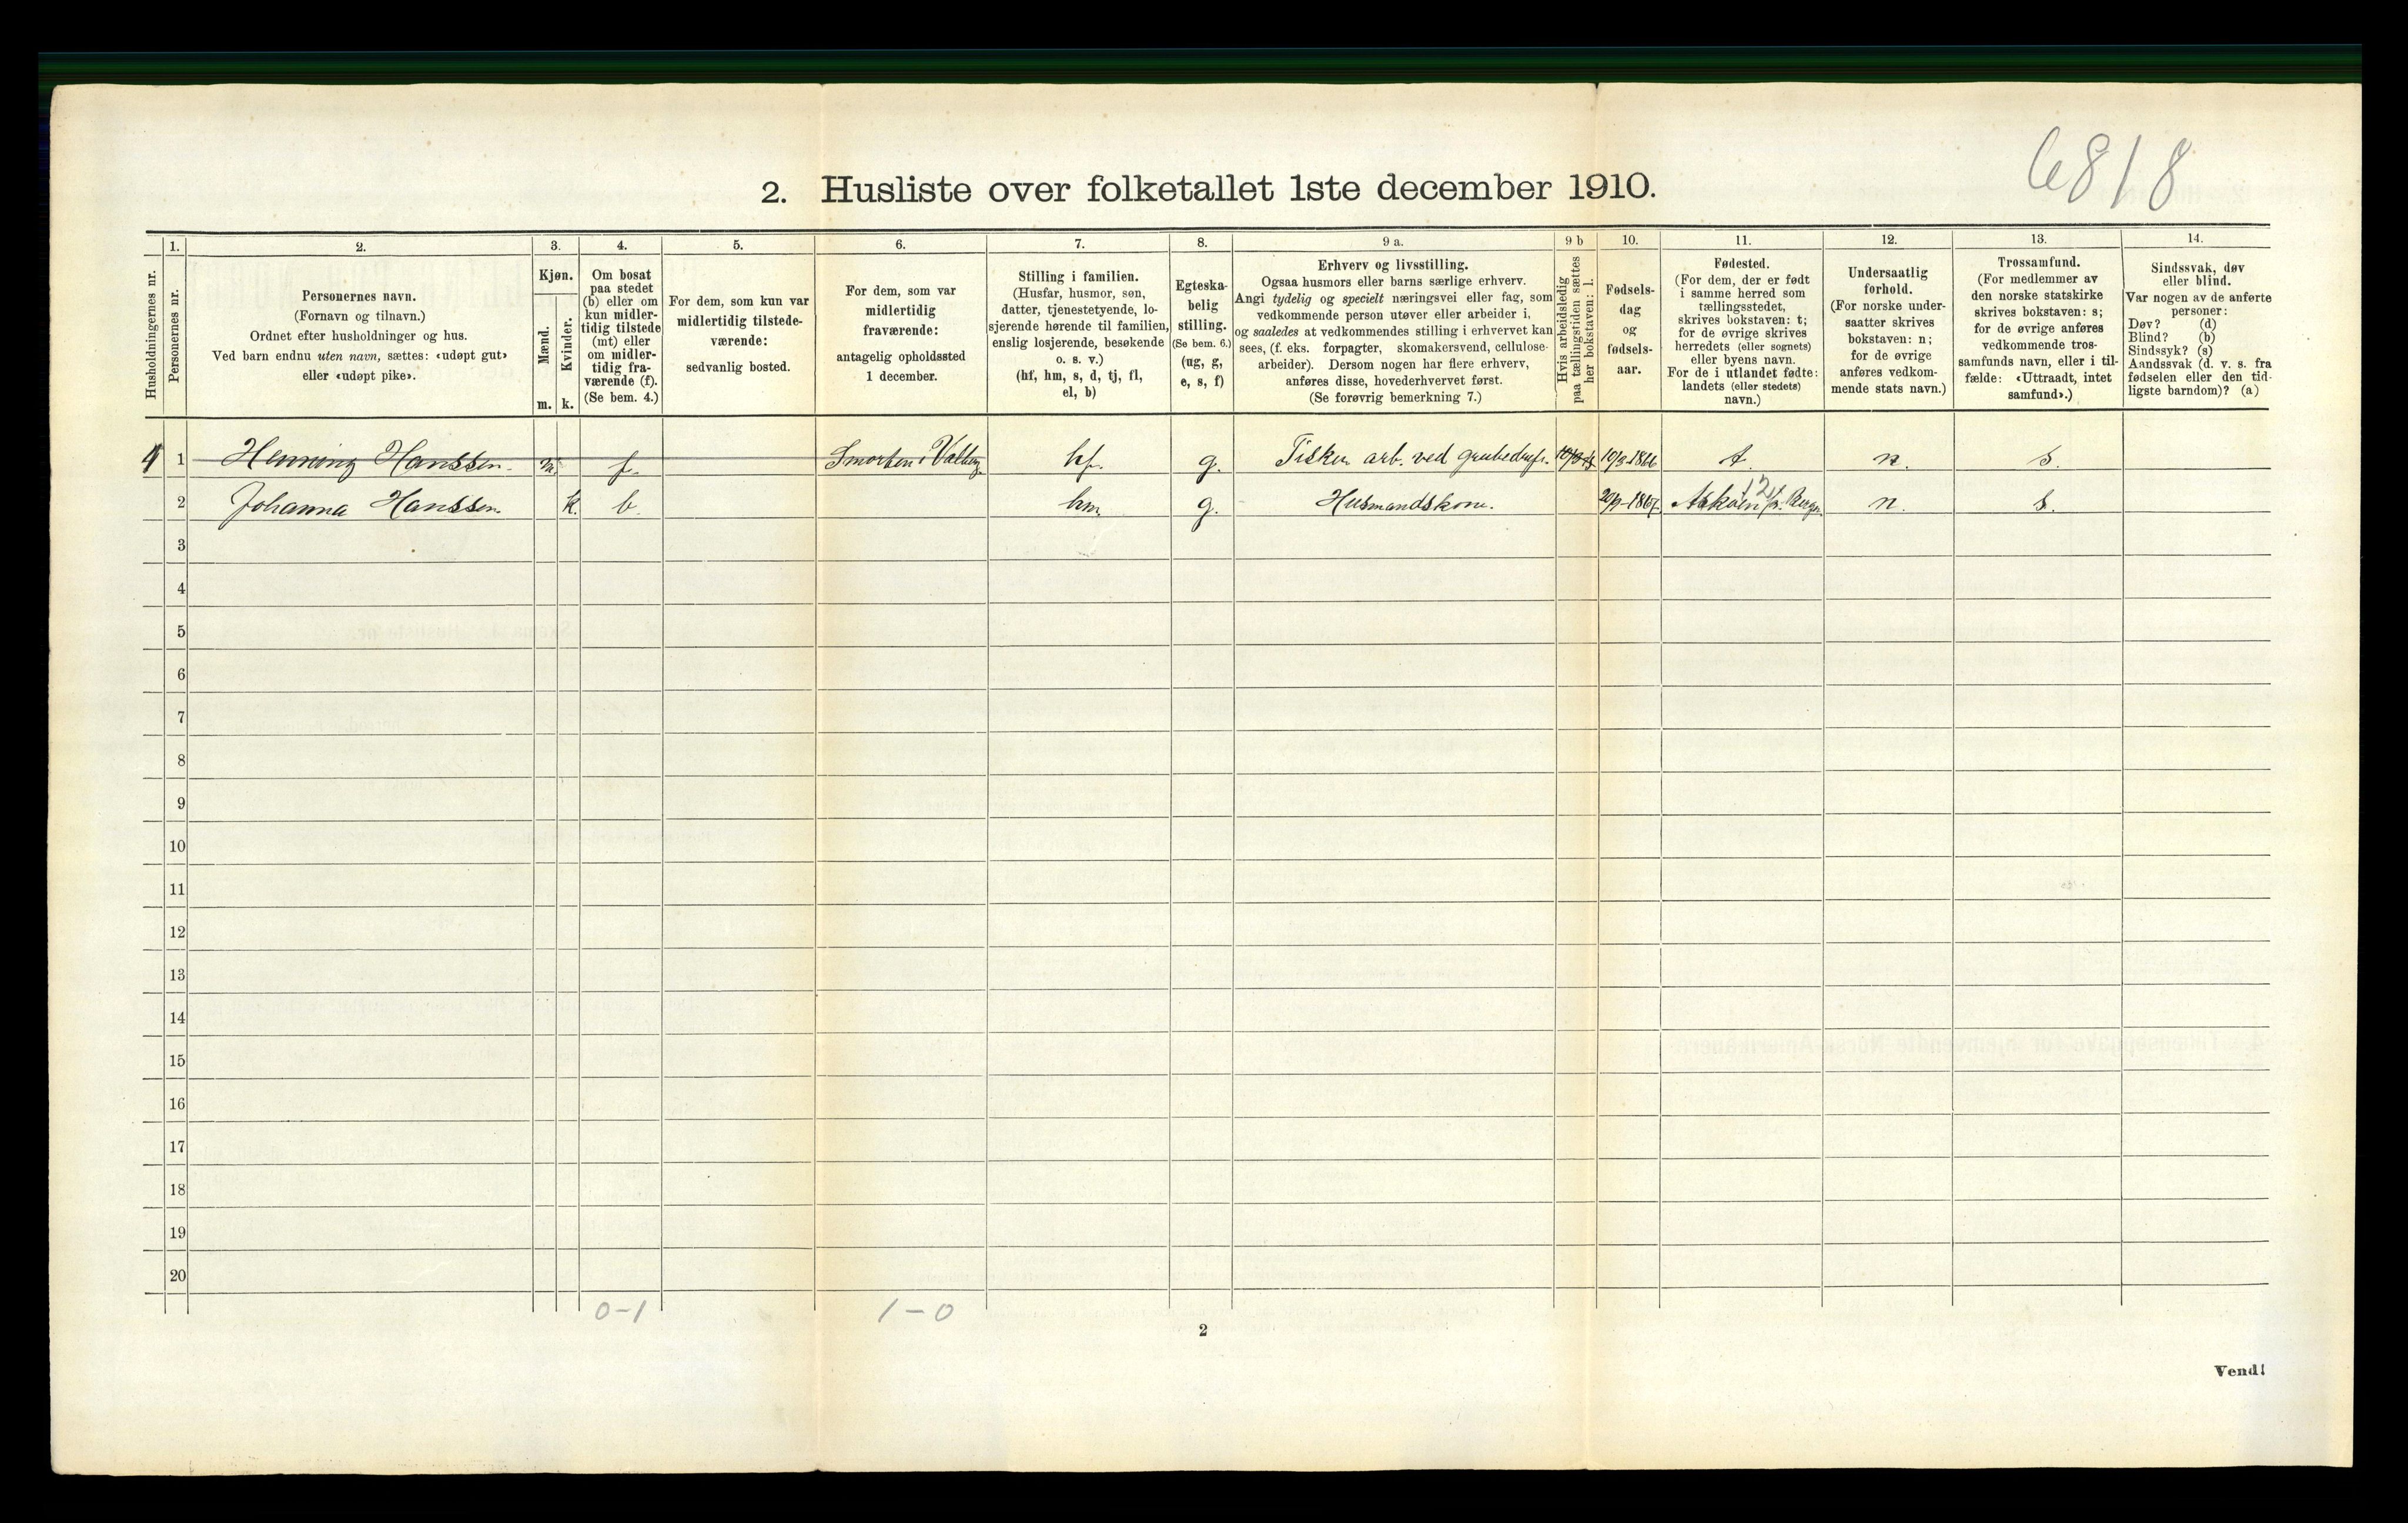 6818
2. Husliste over folketallet 1ste december 1910.
Husholdningernes nr.
1.
Personernes nr.
2.
Personernes navn.
(Fornavn og tilnavn.)
Ordnet efter husholdninger og hus.
Ved barn endnu uten navn, sættes: «udøpt gut»
eller «udøpt pike».
3.
Kjøn.
Mænd.
Kvinder.
m. k.
4.
Om bosat
paa stedet
(b) eller om
kun midler-
tidig tilstede
(mt) eller
om midler-
tidig fra-
værende (f).
(Se bem. 4.)
5.
For dem, som kun var
midlertidig tilstede-
værende:
sedvanlig bosted.
6.
For dem, som var
midlertidig
fraværende:
antagelig opholdssted
1 december.
7.
Stilling i familien.
(Husfar, husmor, søn,
datter, tjenestetyende, lo-
sjerende hørende til familien,
enslig losjerende, besøkende
o. s. v.)
(hf, hm, s, d, tj, fl,
el, b)
8.
Egteska-
belig
stilling.
(Se bem. 6.)
(ug, g,
e, s, f)
9 a.
Erhverv og livsstilling.
Ogsaa husmors eller barns særlige erhverv.
Angi tydelig og specielt næringsvei eller fag, som
vedkommende person utøver eller arbeider i,
og saaledes at vedkommendes stilling i erhvervet kan
sees, (f. eks. forpagter, skomakersvend, cellulose-
arbeider). Dersom nogen har flere erhverv,
anføres disse, hovederhvervet først.
(Se forøvrig bemerkning 7.)
9 b
Hvis arbeidsledig
paa tællingstiden sættes
her bokstaven: l.
10.
Fødsels-
dag
og
fødsels-
aar.
11.
Fødested.
(For dem, der er født
i samme herred som
tællingsstedet,
skrives bokstaven: t;
for de øvrige skrives
herredets (eller sognets)
eller byens navn.
For de i utlandet fødte:
landets (eller stedets)
navn.)
12.
Undersaatlig
forhold.
(For norske under-
saatter skrives
bokstaven: n;
for de øvrige
anføres vedkom-
mende stats navn.)
13.
Trossamfund.
(For medlemmer av
den norske statskirke
skrives bokstaven: s;
for de øvrige anføres
vedkommende tros-
samfunds navn, eller i til-
fælde: «Uttraadt, intet
samfund».)
14.
Sindssvak, døv
eller blind.
Var nogen av de anførte
personer:
Døv? (d)
Blind? (b)
Sindssyk? (s)
Aandssvak (d. v. s. fra
fødselen eller den tid-
ligste barndom)? (a)
1 Henning Hanssen. m. f. Smorten i Valberg. hf. g. Fisker arb. ved grubedrift. 10/3-1866 t. n. s.
2 Johanna Hanssen. k. b. hm. g. Husmandskone. Askøen Bergen. n. s.
3
4
5
6
7
8
9
10
11
12
13
14
15
16
17
18
19
20
0-1 1-0
2
Vend!